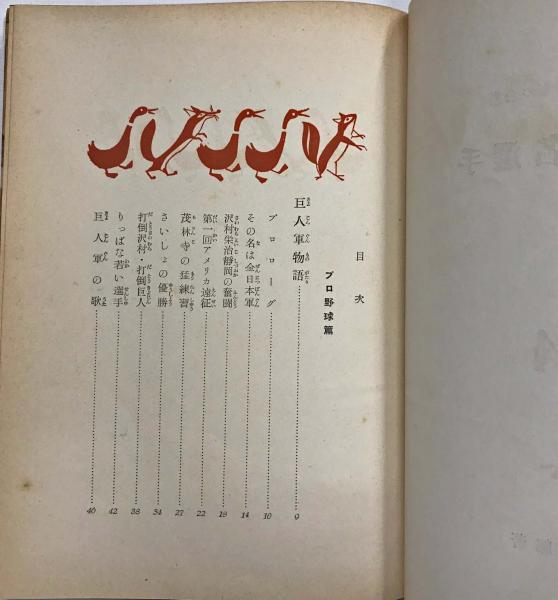 目次
プロ野球篇
巨人軍物語 9
プロローグ 10
その名は全日本軍 14
沢村栄治静岡の奮闘 18
第一回アメリカ遠征 22
茂林寺の猛練習 27
さいしょの優勝 34
打倒沢村・打倒巨人 38
りっぱな若い選手 42
巨人軍の歌 46
選手